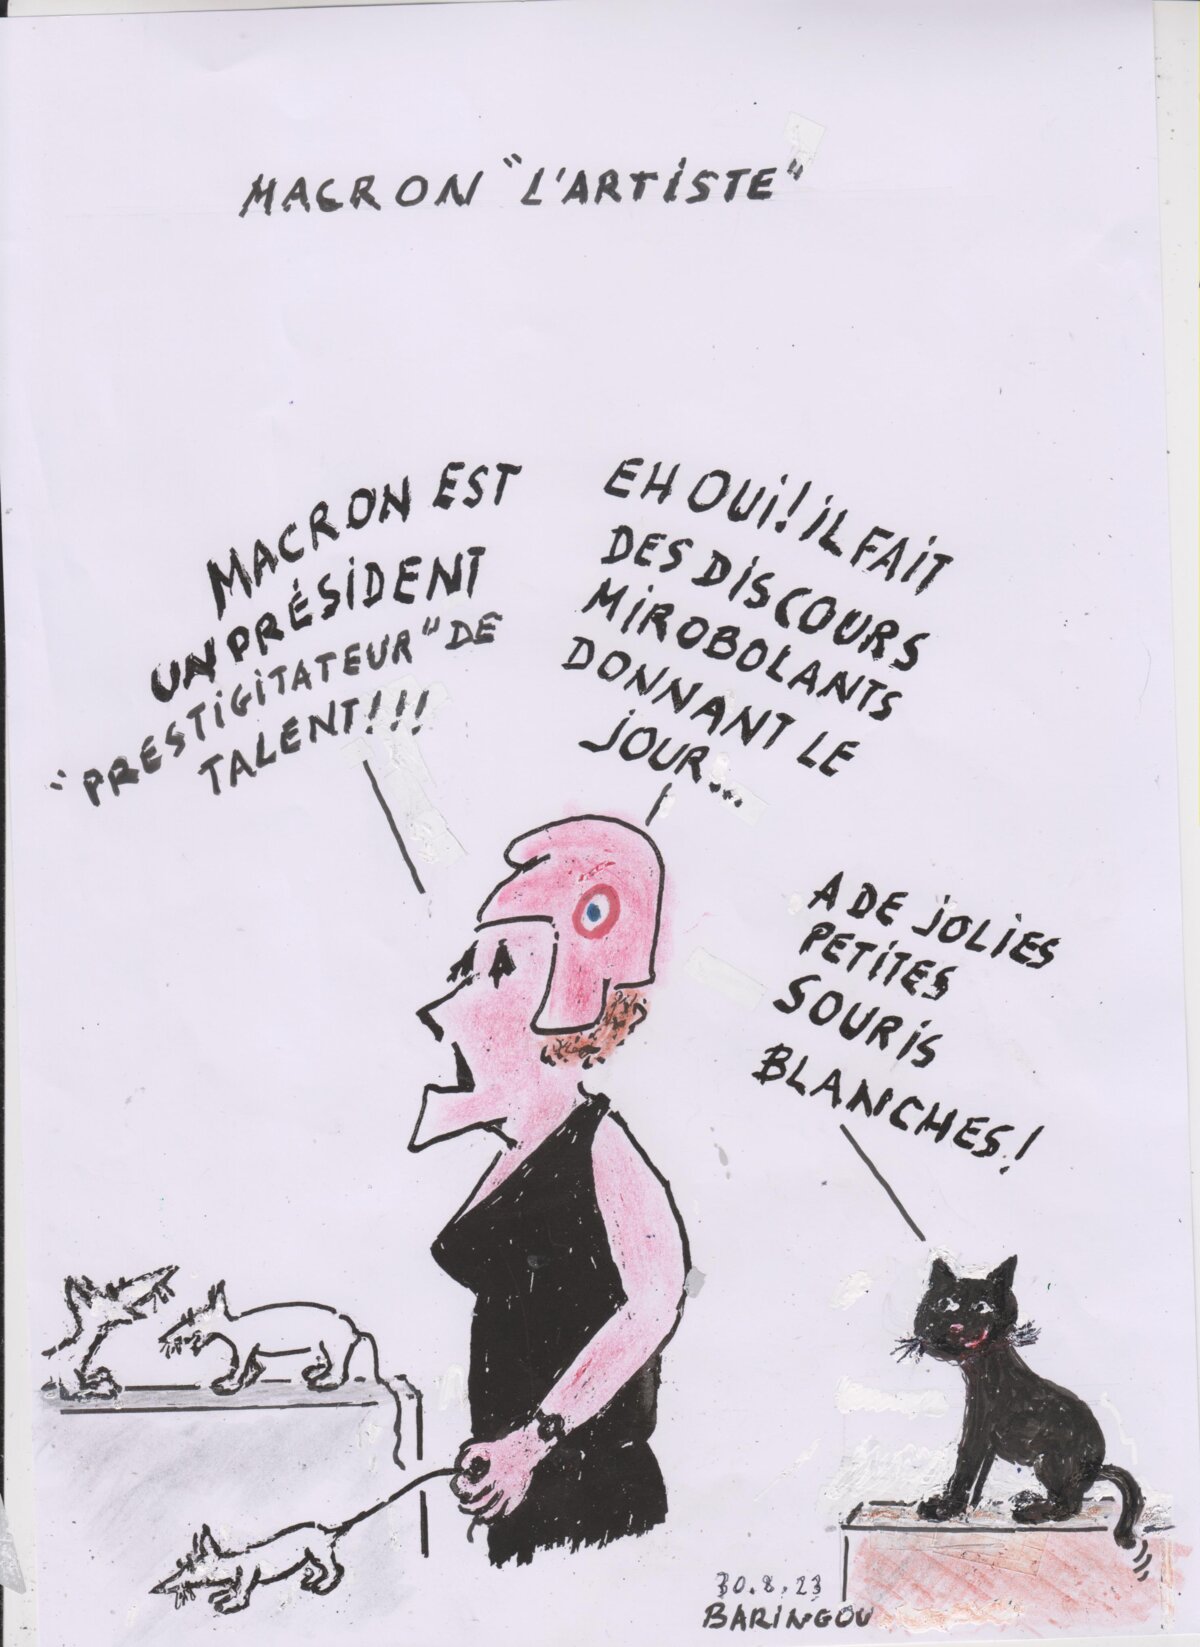 MACRON "L'ARTISTE"
MACRON EST
UN PRÉSIDENT
"PRESTIGITATEUR" DE
TALENT!!!
EH OUI! IL FAIT
DES DISCOURS
MIROBOLANTS
DONNANT LE
JOUR...
A DE JOLIES
PETITES
SOURIS
BLANCHES!
30.8.23
BARINGOU